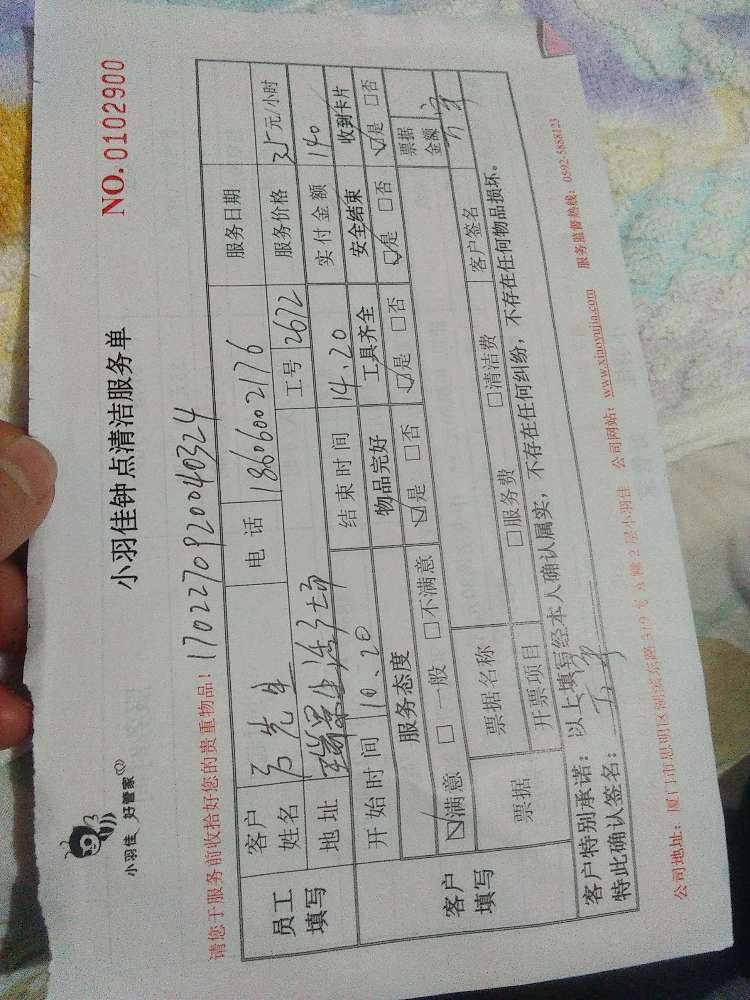 小羽佳 好管家
小羽佳钟点清洁服务单
NO.0102900
请您于服务前收拾好您的贵重物品！
1702270920040324
员工填写
客户姓名 先生 电话 18606002176 服务日期
地址 工号 2672 服务价格 35元/小时
开始时间 10.20 结束时间 14.20 实付金额 140
客户填写
服务态度 物品完好 工具齐全 安全结束 收到卡片
☑满意 □一般 □不满意 ☑是 □否 ☑是 □否 ☑是 □否 ☑是 □否
票据 票据名称 票据金额
开票项目 □服务费 □清洁费 客户签名
客户特别承诺：以上填写经本人确认属实，不存在任何纠纷，不存在任何物品损坏。
特此确认签名：
公司地址：厦门市思明区湖滨东路319号A幢2层小羽佳 公司网站：www.xiaoyujia.com 服务监督热线：0592-5888123